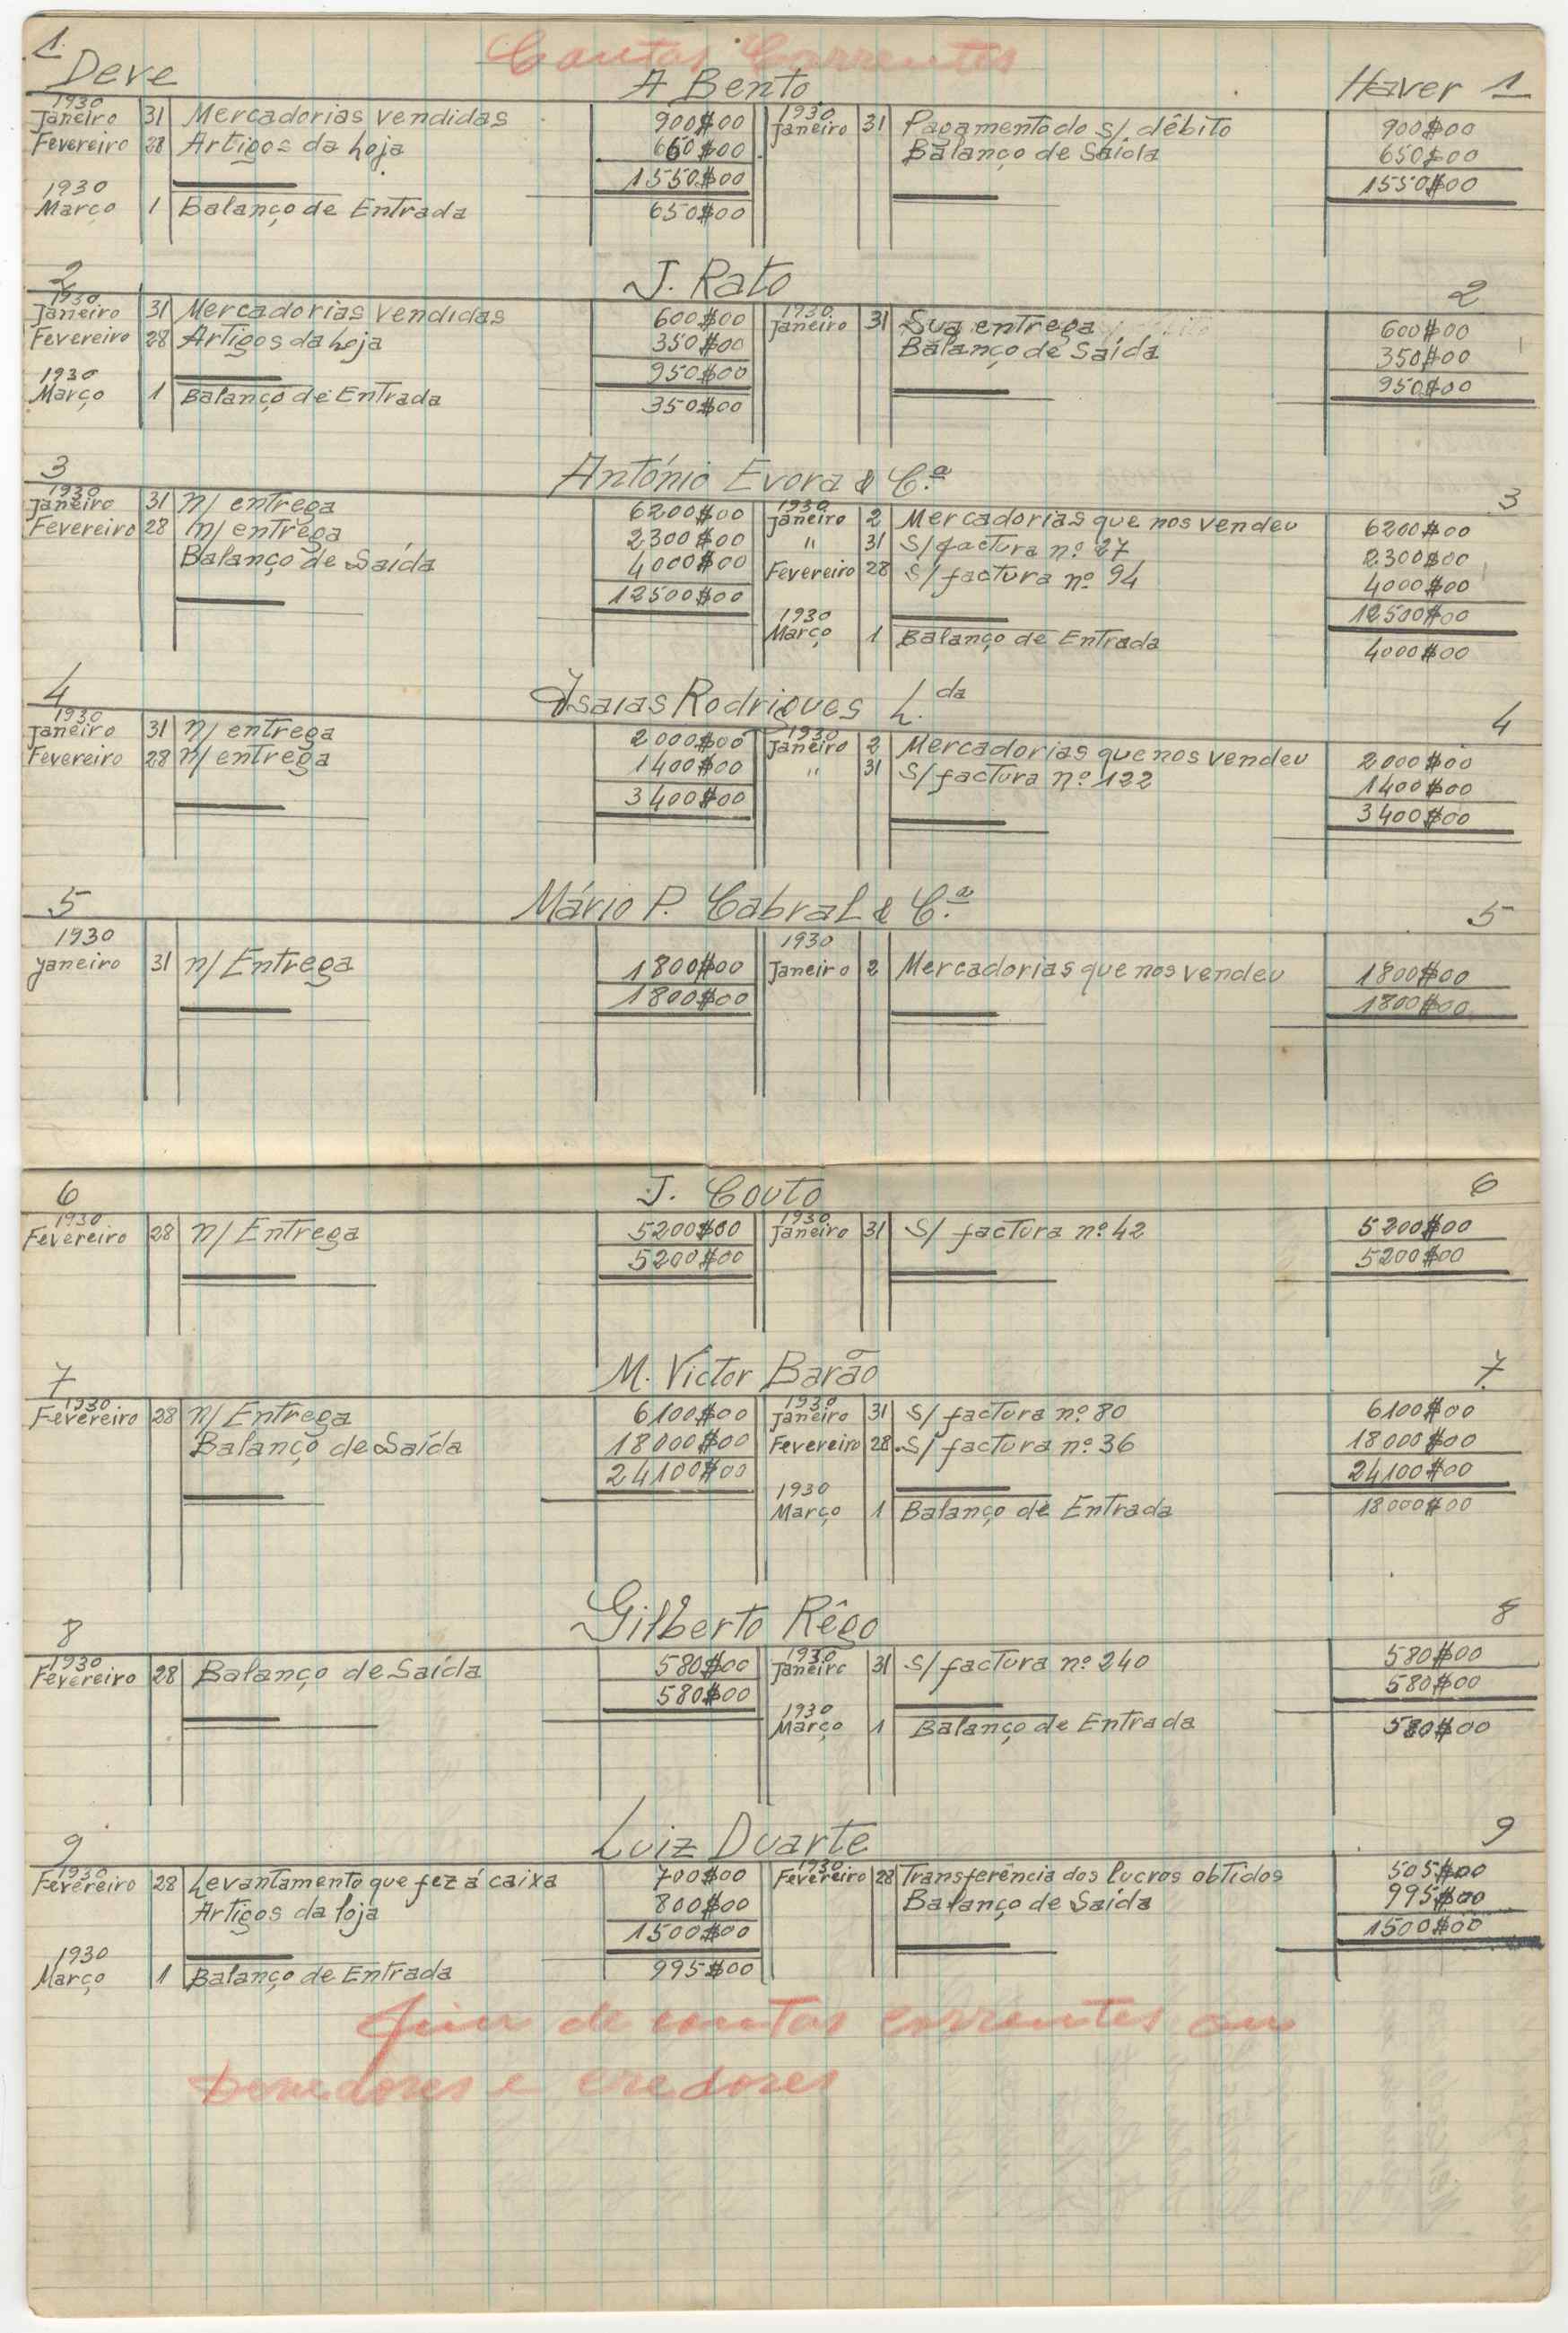 1
Contas Correntes
Deve A Bento Haver 1
1930 1930
Janeiro 31 Mercadorias vendidas 900$00 Janeiro 31 Pagamento do s/ débito 900$00
Fevereiro 28 Artigos da loja 650$00 Balanço de Saída 650$00
1550$00 1550$00
1930
Março 1 Balanço de Entrada 650$00
2 J. Rato 2
1930 1930
Janeiro 31 Mercadorias vendidas 600$00 Janeiro 31 Sua entrega 600$00
Fevereiro 28 Artigos da loja 350$00 Balanço de Saída 350$00
950$00 950$00
1930
Março 1 Balanço de Entrada 350$00
3 António Evora & C.ª 3
1930 1930
Janeiro 31 n/ entrega 6200$00 Janeiro 2 Mercadorias que nos vendeu 6200$00
Fevereiro 28 n/ entrega 2300$00 " 31 s/ factura nº 27 2300$00
Balanço de Saída 4000$00 Fevereiro 28 s/ factura nº 94 4000$00
12500$00 12500$00
1930
Março 1 Balanço de Entrada 4000$00
4 Isaias Rodrigues L.da 4
1930 1930
Janeiro 31 n/ entrega 2000$00 Janeiro 2 Mercadorias que nos vendeu 2000$00
Fevereiro 28 n/ entrega 1400$00 " 31 s/ factura nº 122 1400$00
3400$00 3400$00
5 Mário P. Cabral & C.ª 5
1930 1930
Janeiro 31 n/ Entrega 1800$00 Janeiro 2 Mercadorias que nos vendeu 1800$00
1800$00 1800$00
6 J. Couto 6
1930 1930
Fevereiro 28 n/ Entrega 5200$00 Janeiro 31 s/ factura nº 42 5200$00
5200$00 5200$00
7 M. Victor Barão 7
1930 1930
Fevereiro 28 n/ Entrega 6100$00 Janeiro 31 s/ factura nº 80 6100$00
Balanço de Saída 18000$00 Fevereiro 28 s/ factura nº 36 18000$00
24100$00 24100$00
1930
Março 1 Balanço de Entrada 18000$00
8 Gilberto Rêgo 8
1930 1930
Fevereiro 28 Balanço de Saída 580$00 Janeiro 31 s/ factura nº 240 580$00
580$00 580$00
1930
Março 1 Balanço de Entrada 580$00
9 Luiz Duarte 9
1930 1930
Fevereiro 28 Levantamento que fez á caixa 700$00 Fevereiro 28 Transferência dos lucros obtidos 505$00
Artigos da loja 800$00 Balanço de Saída 995$00
1500$00 1500$00
1930
Março 1 Balanço de Entrada 995$00
Fim de contas correntes ou
Devedores e credores